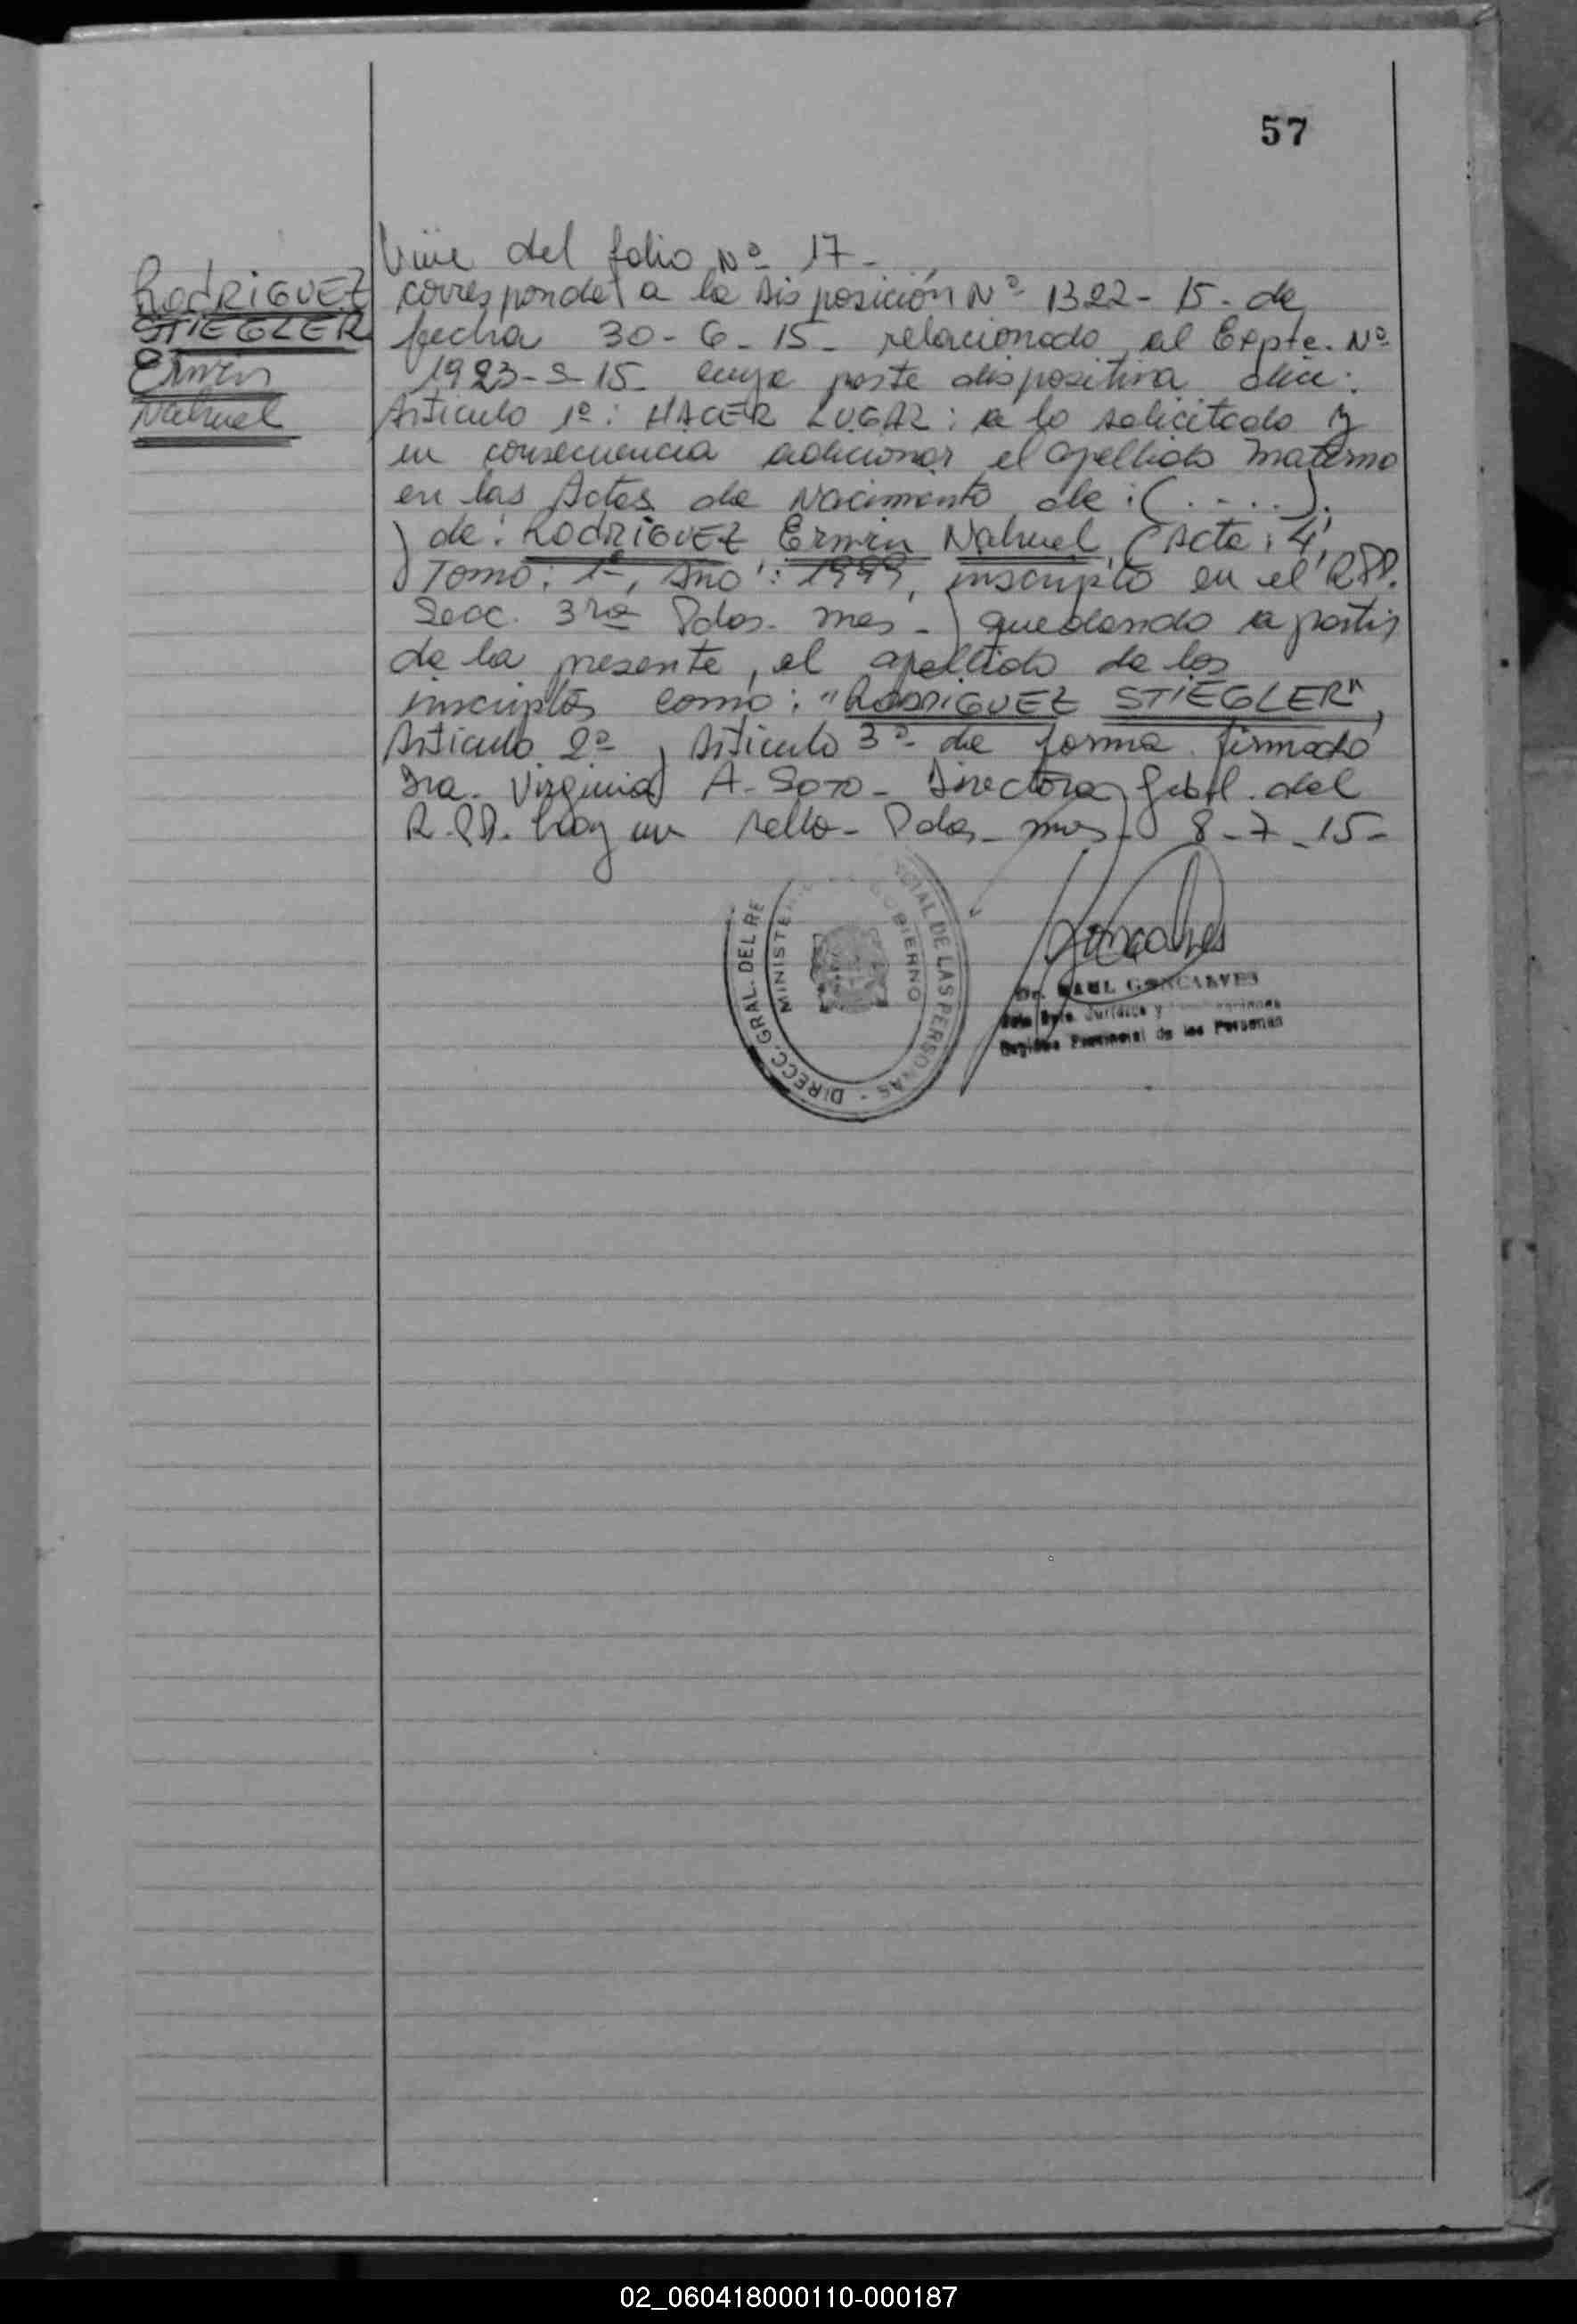 57
RODRIGUEZ
STIEGLER
Erwin
Nahuel
Viene del folio Nº 17-
corresponde a la Disposición Nº 1322-15- de
fecha 30-6-15- relacionado al Expte. Nº
1923-S-15- cuya parte dispositiva dice:
Articulo 1º: HACER LUGAR: a lo solicitado y
en consecuencia adicionar el apellido materno
en las Actas de Nacimiento de: (.....).
de: RODRIGUEZ Erwin Nahuel (Acta: 4,
Tomo: 1º, Año: 1999, inscripto en el R.P.P.
Secc. 3ra Pdas. mes-) quedando a partir
de la presente, el apellido de los
inscriptos como: "RODRIGUEZ STIEGLER",
Articulo 2º, Articulo 3º de forma firmado
Dra. Virginia A. Soto- Directora Gral. del
R.P.P. hay un sello- Pdas- mes- 8-7-15-
DIRECC. GRAL. DEL RE
DE LAS PERSONAS -
MINISTE GOBIERNO
Goncalves
Dr. RAUL GONCALVES
Jurídica y
Registro Provincial de las Personas
02_060418000110-000187